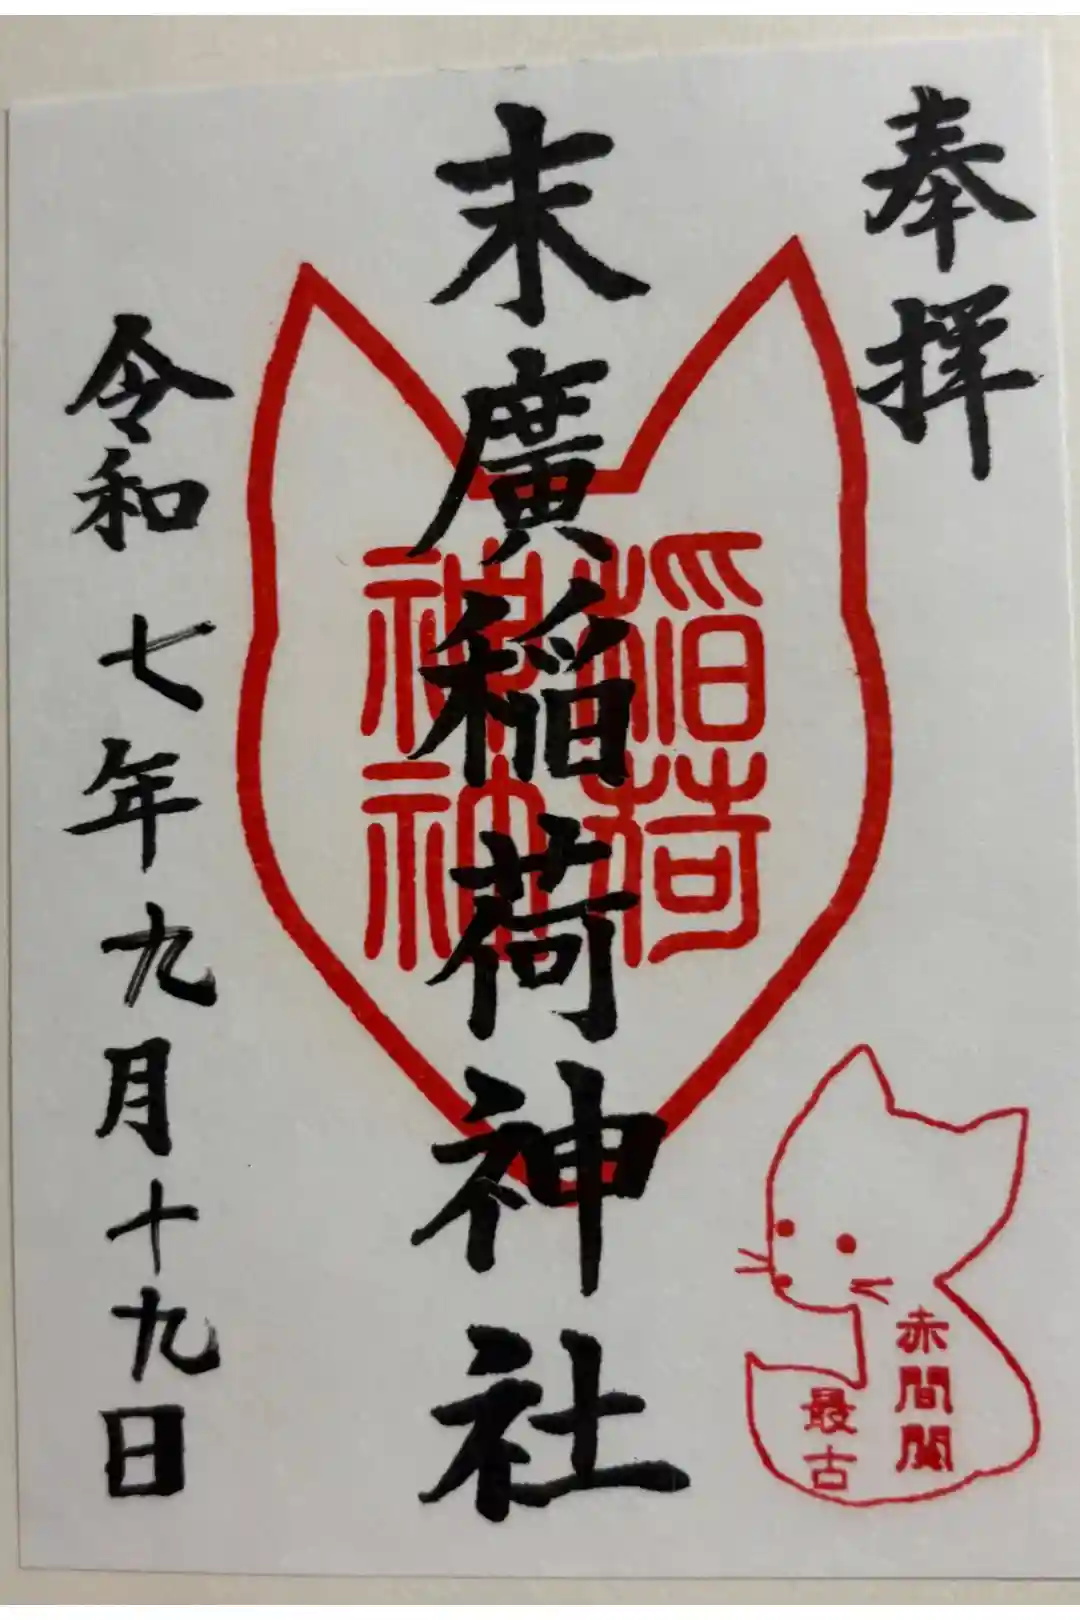 奉拝
末廣稲荷神社
稲荷
神神
令和七年九月十九日
赤間関
最古